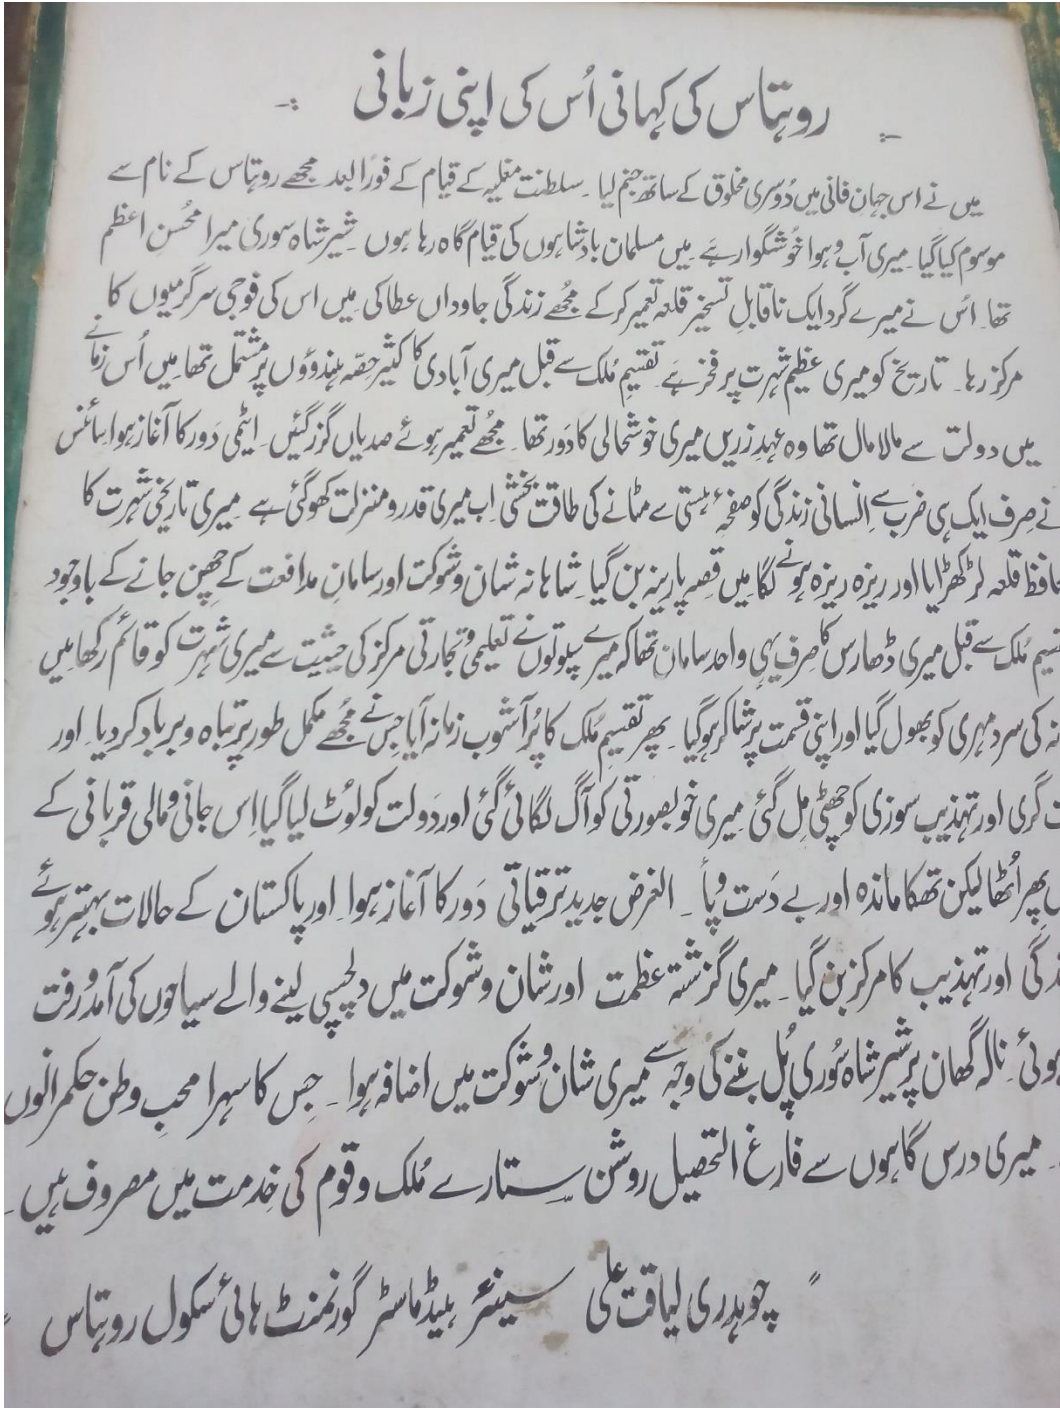 روہتاس کی کہانی اُس کی اپنی زبانی
میں نے اس جہان فانی میں دُوسری مخلوق کے ساتھ جنم لیا ۔ سلطنت مغلیہ کے قیام کے فوراً بعد مجھے روہتاس کے نام سے
موسوم کیا گیا ۔ میری آب و ہوا خوشگوار ہے ۔ میں مسلمان بادشاہوں کی قیام گاہ رہا ہوں ۔ شیر شاہ سوری میرا محُسنِ اعظم
تھا ۔ اُس نے میرے گرد ایک ناقابلِ تسخیر قلعہ تعمیر کر کے مجُھے زندگی جاوداں عطا کی ۔ میں اس کی فوجی سرگرمیوں کا
مرکز رہا ۔ تاریخ کو میری عظیم شہرت پر فخر ہے ۔ تقسیمِ مُلک سے قبل میری آبادی کا کثیر حصّہ ہندوؤں پر مشتمل تھا ۔ میں اُس زمانے
میں دولت سے مالا مال تھا وہ عہدِ زریں میری خوشحالی کا دَور تھا ۔ مجُھے تعمیر ہوئے صدیاں گزر گئیں ۔ ایٹمی دَور کا آغاز ہوا ۔ سائنس
نے صِرف ایک ہی ضرب سے اِنسانی زندگی کو صفحۂ ہستی سے مٹانے کی طاقت بخشی ۔ اب میری قدر و منزلت کھو گئی ہے ۔ میری تاریخی شہرت کا
محافظ قلعہ لڑکھڑایا اور ریزہ ریزہ ہونے لگا ۔ میں قصہِ پارینہ بن گیا ۔ شاہانہ شان و شوکت اور سامانِ مدافعت کے چِھن جانے کے باوجود
تقسیم مُلک سے قبل میری ڈھارس کا صِرف یہی واحد سامان تھا کہ میرے سپوتوں نے تعلیمی و تجارتی مرکز کی حیثیت سے میری شہرت کو قائم رکھا ۔ میں
کی سرد مہری کو بھول گیا اور اپنی قسمت پر شاکر ہو گیا ۔ پھر تقسیم مُلک کا پُر آشوب زمانہ آیا جِس نے مُجھے مکمل طور پر تباہ و برباد کر دیا ۔ اور
گری اور تہذیب سوزی کو چھٹی مِل گئی ۔ میری خوبصورتی کو آگ لگائی گئی اور دَولت کو لُوٹ لیا گیا ۔ اِس جانی و مالی قربانی کے
پھر اُٹھا لیکن تھکا ماندہ اور بے دَست و پا ۔ الغرض جدید ترقیاتی دَور کا آغاز ہوا ۔ اور پاکستان کے حالات بہتر ہوئے
اور تہذیب کا مرکز بن گیا ۔ میری گزشتہ عظمت اور شان و شوکت میں دلچسپی لینے والے سیاحوں کی آمد و رفت
ہوئی ۔ نالہ گھان پر شیر شاہ سُوری پُل بننے کی وجہ سے میری شان و شوکت میں اضافہ ہوا ۔ جِس کا سہرا محبِ وطن حکمرانوں
میری درس گاہوں سے فارغ التحصیل روشن ستارے مُلک و قوم کی خِدمت میں مصروف ہیں ۔
" چوہدری لیاقت علی سینئر ہیڈ ماسٹر گورنمنٹ ہائی سکول روہتاس "